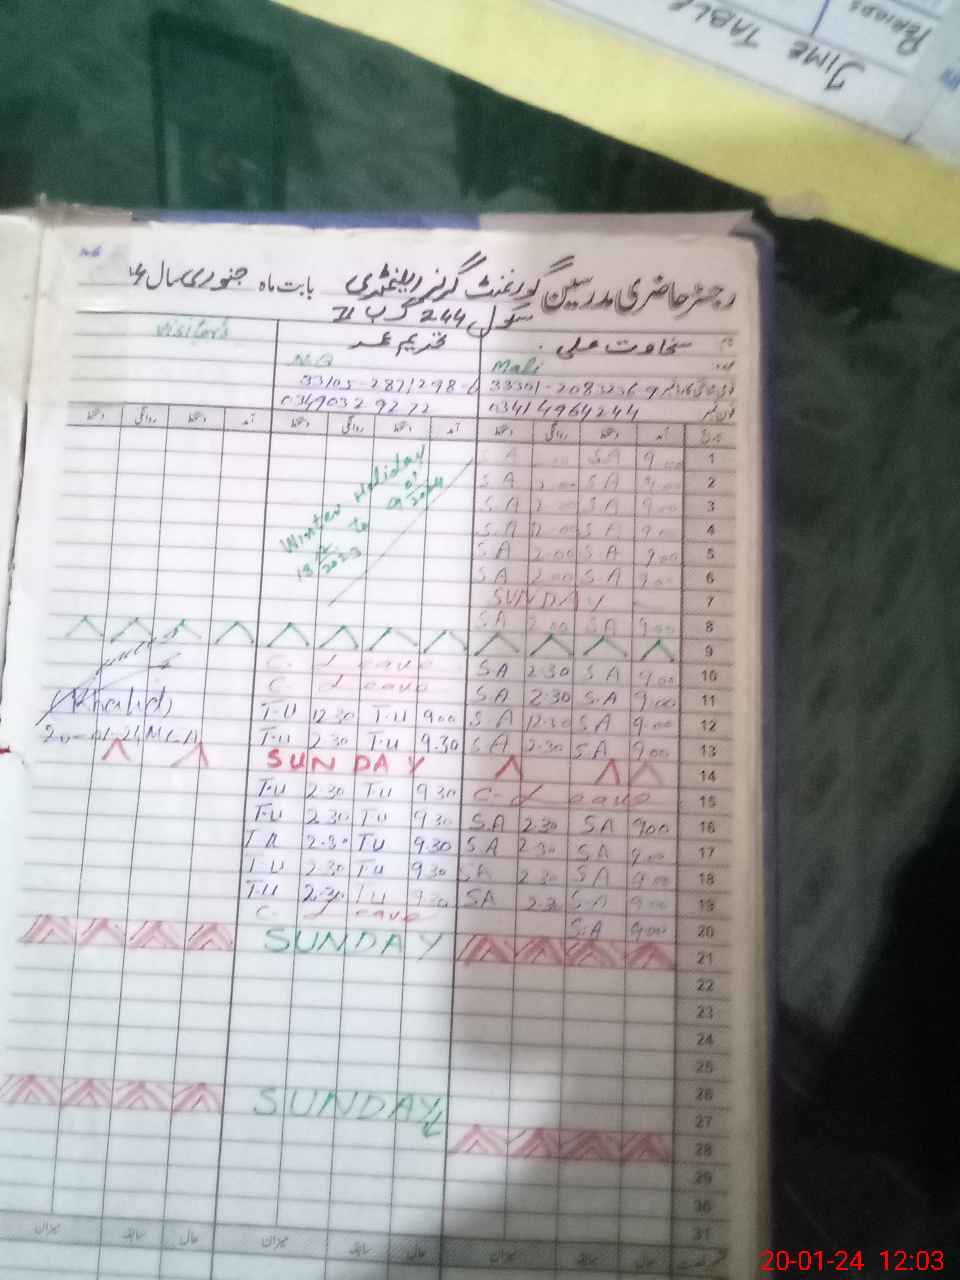 TIME TABLE
PERIODS
رجسٹر حاضری مدرسین گورنمنٹ گرلز ایلیمنٹری بابت ماہ جنوری سال
سکول 244 گ ب II
Visitors تحریم عمر سخاوت علی
N.Q Mali
33105-2871298-6 33301-2083236-9
03490329272 03414964244
Winter Holiday
to
1 S A 9.00
2 S A 2.00 S A 9.00
3 S A 2.00 S A 9.00
4 S A 2.00 S A 9.00
5 S A 2.00 S A 9.00
6 S.A 2.00 S.A 9.00
7 SUNDAY
8 S A 2.00 S A 9.00
9
C. Leave S.A 2.30 S A 9.00 10
C Leave S.A 2.30 S.A 9.00 11
Khalid T-U 12.30 T-U 9.00 S A 12.30 S A 9.00 12
T-U 2.30 T-U 9.30 S A 2.30 S.A 9.00 13
SUNDAY 14
T-U 2.30 T-U 9.30 C. Leave 15
T-U 2.30 T-U 9.30 S.A 2.30 S A 9.00 16
2.30 TU 9.30 S A 2.30 S A 9.00 17
T-U 2.30 T-U 9.30 SA 2.30 S A 9.00 18
T-U 2.30 T-U 9.30 SA 2.30 S-A 9.00 19
C. Leave S.A 9.00 20
SUNDAY 21
22
23
24
25
26
SUNDAY 27
28
29
30
31
میزان سابقہ حال میزان سابقہ حال
20-01-24 12:03